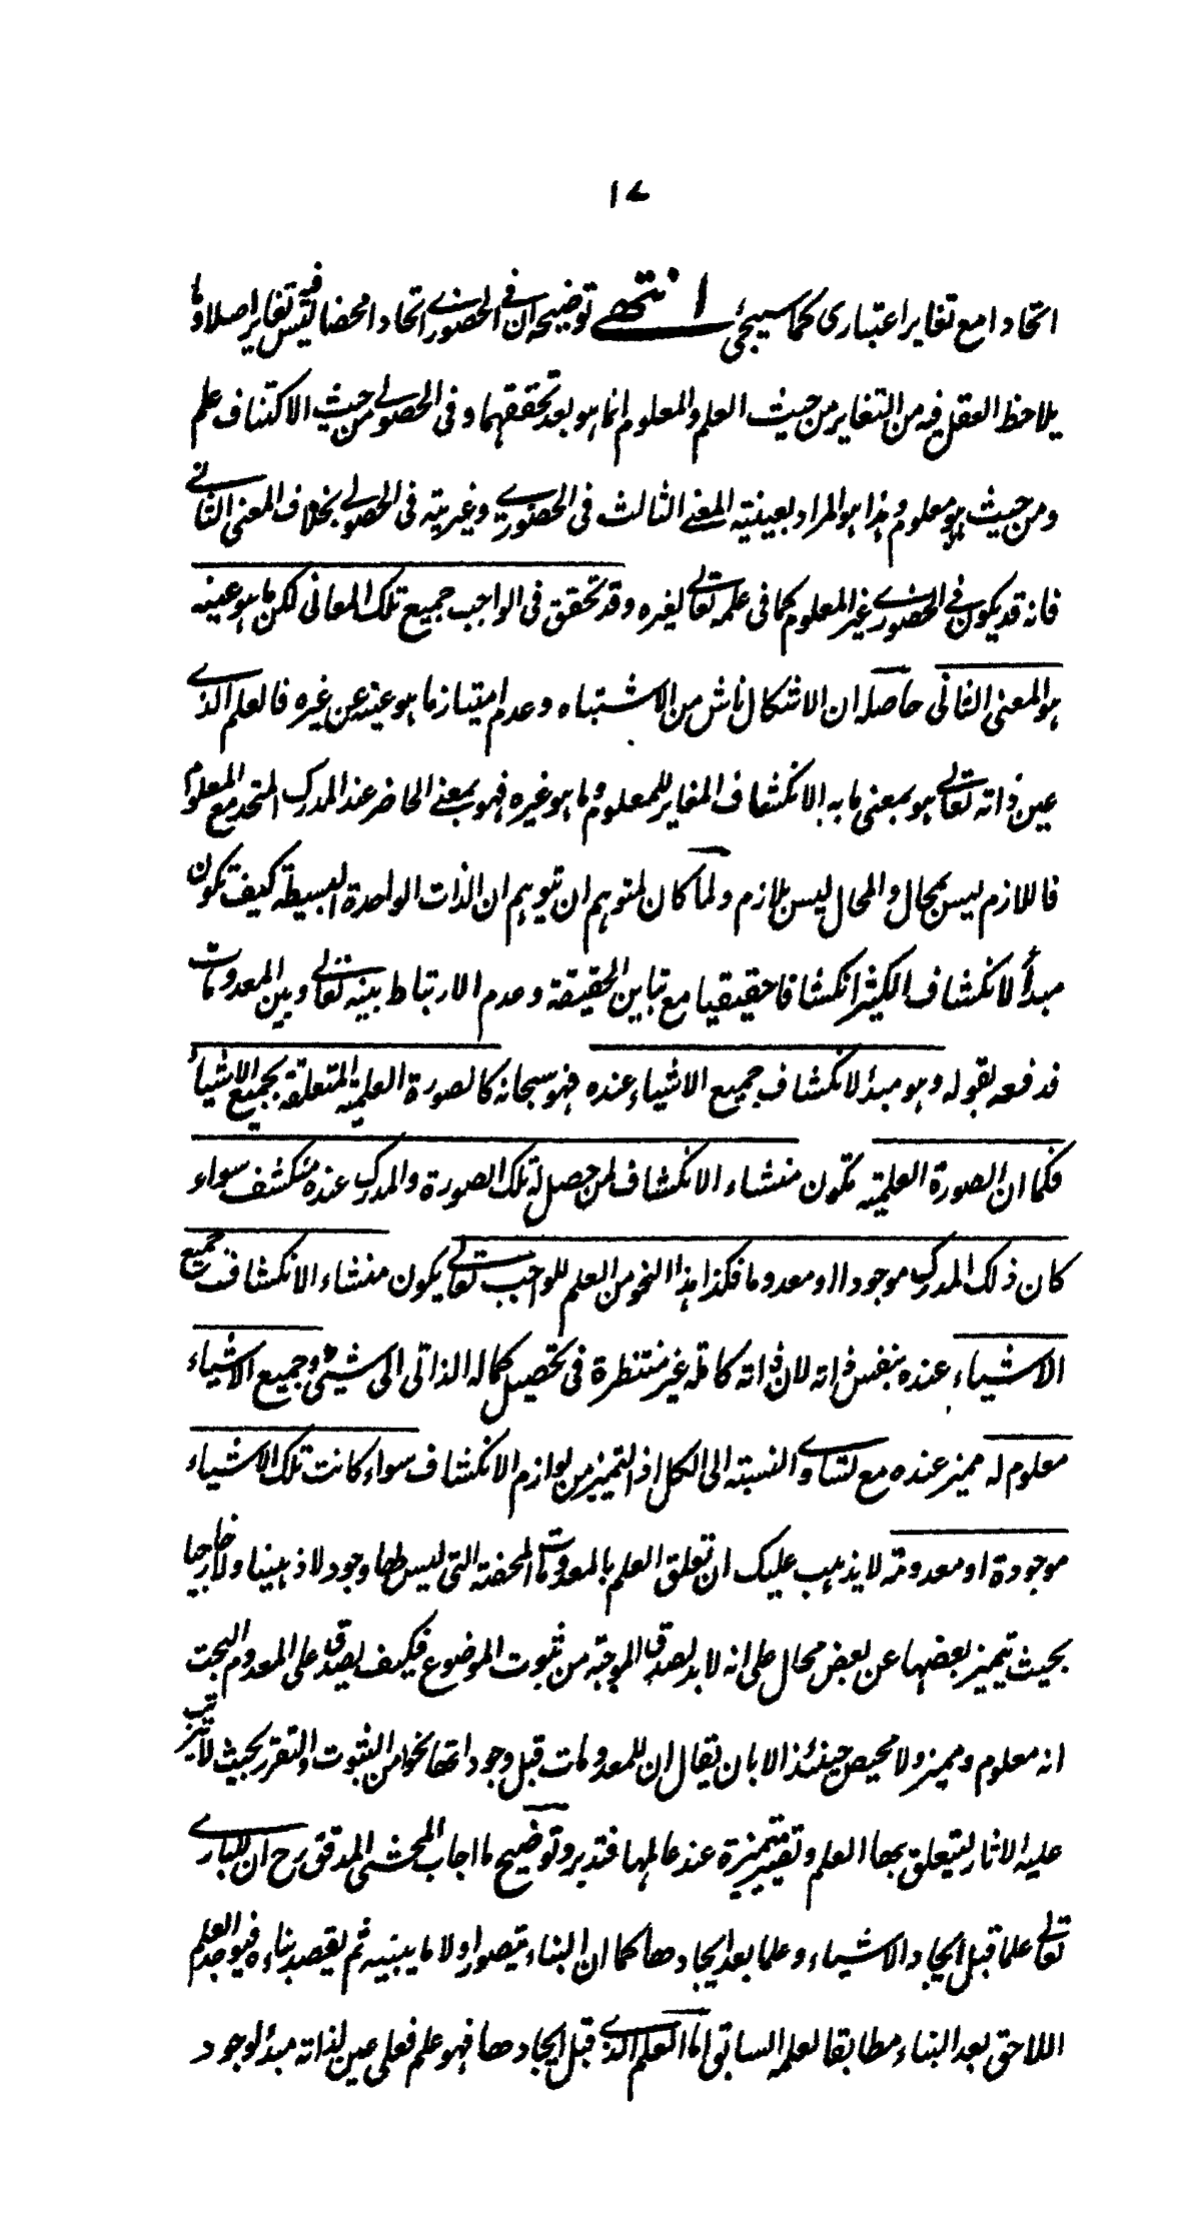 ١٧
اتحادا مع تغاير اعتباري كما سيجئ انتهى توضيحه ان في الحضوري اتحادا محضا ليس فيه تغاير اصلا وما
يلاحظ العقل فيه من التغاير من حيث العلم والمعلوم انما هو بعد تحققهما وفي الحصولي من حيث الاكتناف علم
ومن حيث هو معلوم وهذا هو المراد بعينية المعنى الثالث في الحضوري وغيريته في الحصولي بخلاف المعنى الثاني
فانه قد يكون في الحضوري غير المعلوم كما في علمه تعالى لغيره وقد تحقق في الواجب جميع تلك المعاني لكن ما هو عينه
هو المعنى الثاني حاصله ان الاشكال ناش من الاشتباه وعدم امتياز ما هو عينه عن غيره فالعلم الذي
عين ذاته تعالى هو بمعنى ما به الانكشاف المغاير للمعلوم وما هو غيره فهو بمعنى الحاضر عند المدرك المتحد مع المعلوم
فاللازم ليس بمحال والمحال ليس بلازم ولما كان لمتوهم ان يتوهم ان الذات الواحدة البسيطة كيف تكون
مبدأ لانكشاف الكثير انكشافا حقيقيا مع تباين الحقيقة وعدم الارتباط بينه تعالى وبين المعدومات
فدفعه بقوله وهو مبدأ لانكشاف جميع الاشياء عنده فهو سبحانه كالصورة العلمية المتعلقة بجميع الاشياء
فكما ان الصورة العلمية تكون منشاء الانكشاف لمن حصل له تلك الصورة والمدرك عنده منكشف سواء
كان ذلك المدرك موجودا او معدوما فكذا هذا النحو من العلم للواجب تعالى يكون منشاء الانكشاف جميع
الاشياء عنده بنفس ذاته لان ذاته كاملة غير منتظرة في تحصيل كماله الذاتي الى شيئ وجميع الاشياء
معلوم له مميز عنده مع تساوي النسبة الى الكل اذ التميز من لوازم الانكشاف سواء كانت تلك الاشياء
موجودة او معدومة لا يذهب عليك ان تعلق العلم بالمعدومات المحضة التي ليس لها وجود لا ذهينا ولا خارجيا
بحيث يتميز بعضها عن بعض محال على انه لا بد لصدق الموجبة من ثبوت الموضوع فكيف يصدق على المعدوم البحت
انه معلوم ومميز ولا محيص حينئذ الا بان يقال ان للمعدومات قبل وجوداتها نحوا من الثبوت والتقرر بحيث لا يترتب
عليه الاثار ليتعلق بها العلم وتصير متميزة عند عالمها فتدبر وتوضيح ما اجاب المحشى المدقق رح ان للباري
تعالى علما قبل ايجاد الاشياء وعلما بعد ايجادها كما ان البناء يتصور اولا ما يبنيه ثم يقصد بناءه فيوجد العلم
اللاحق بعد البناء مطابقا لعلمه السابق اما العلم الذي قبل ايجادها فهو علم فعلي عين لذاته مبدأ لوجود